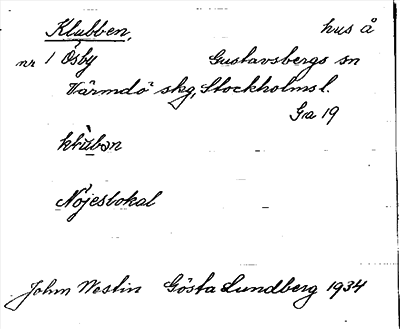 Klubben, hus å
nr 1 Ösby Gustavsbergs sn
Värmdö skg, Stockholms l.
Ga 19
klùbən
Nöjeslokal
John Westin Gösta Lundberg 1934